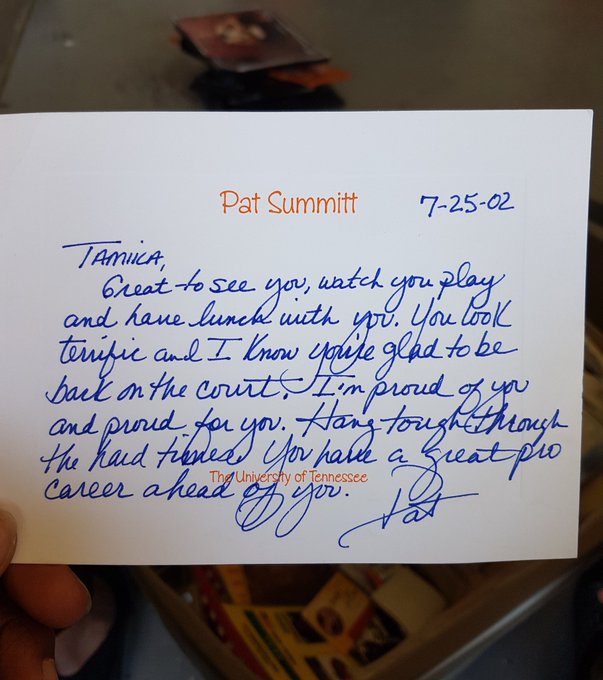 Pat Summitt
7-25-02
TAMIKA,
Great to see you, watch you play
and have lunch with you. You look
terrific and I know you're glad to be
back on the court. I'm proud of you
and proud for you. Hang tough through
the hard times. You have a great pro
The University of Tennessee
career ahead of you.
Pat